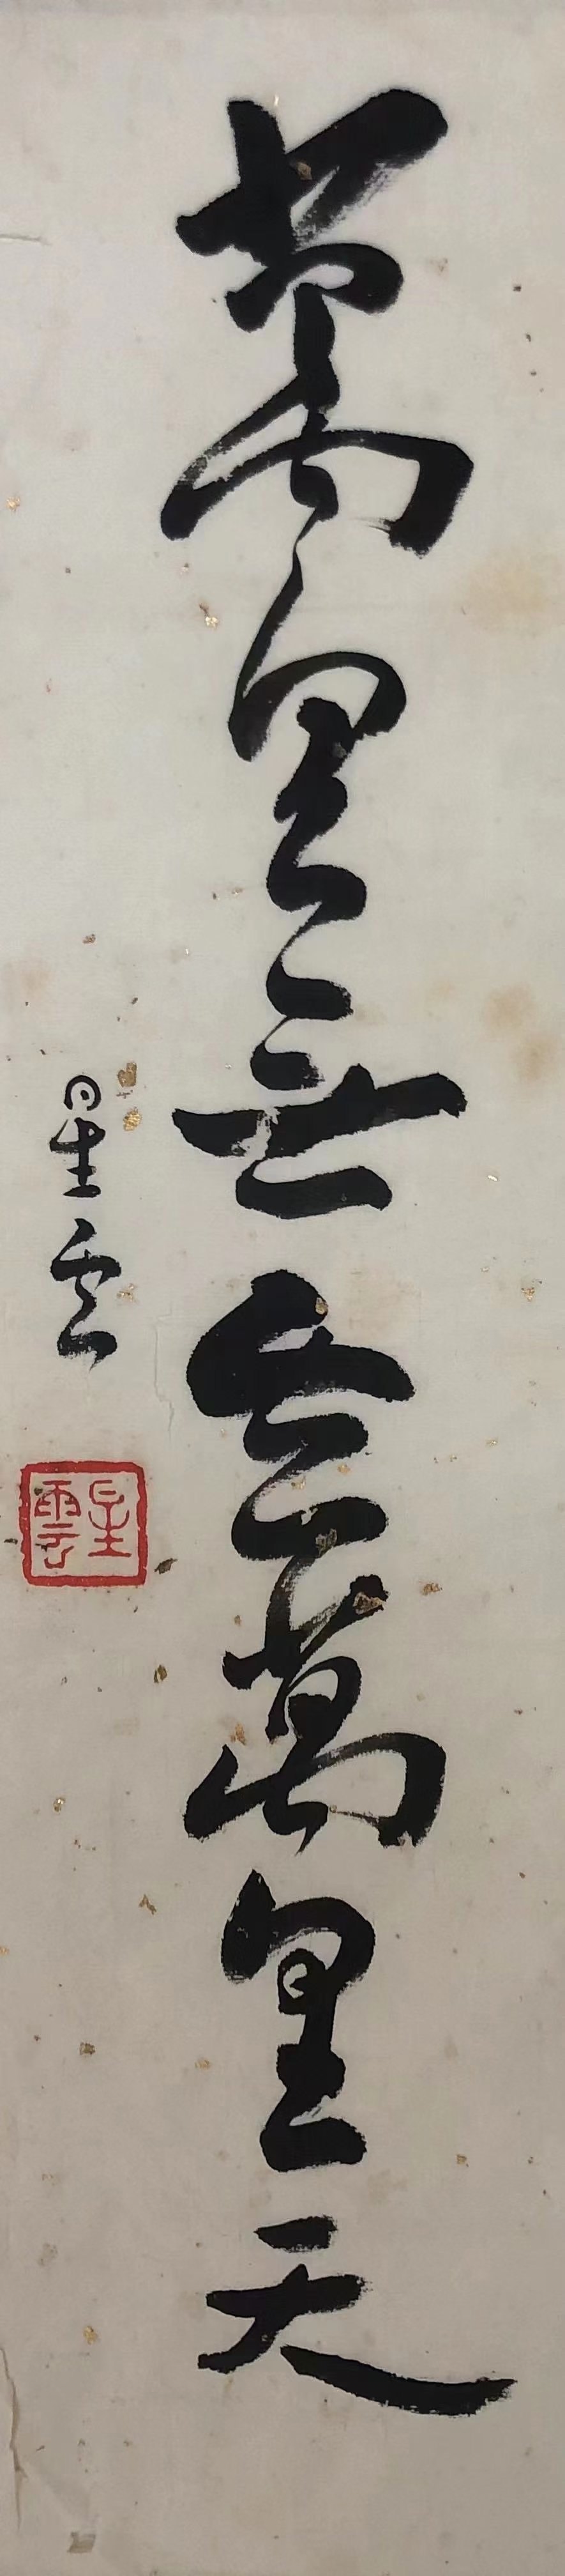 萬里無雲萬里天
星雲
星雲